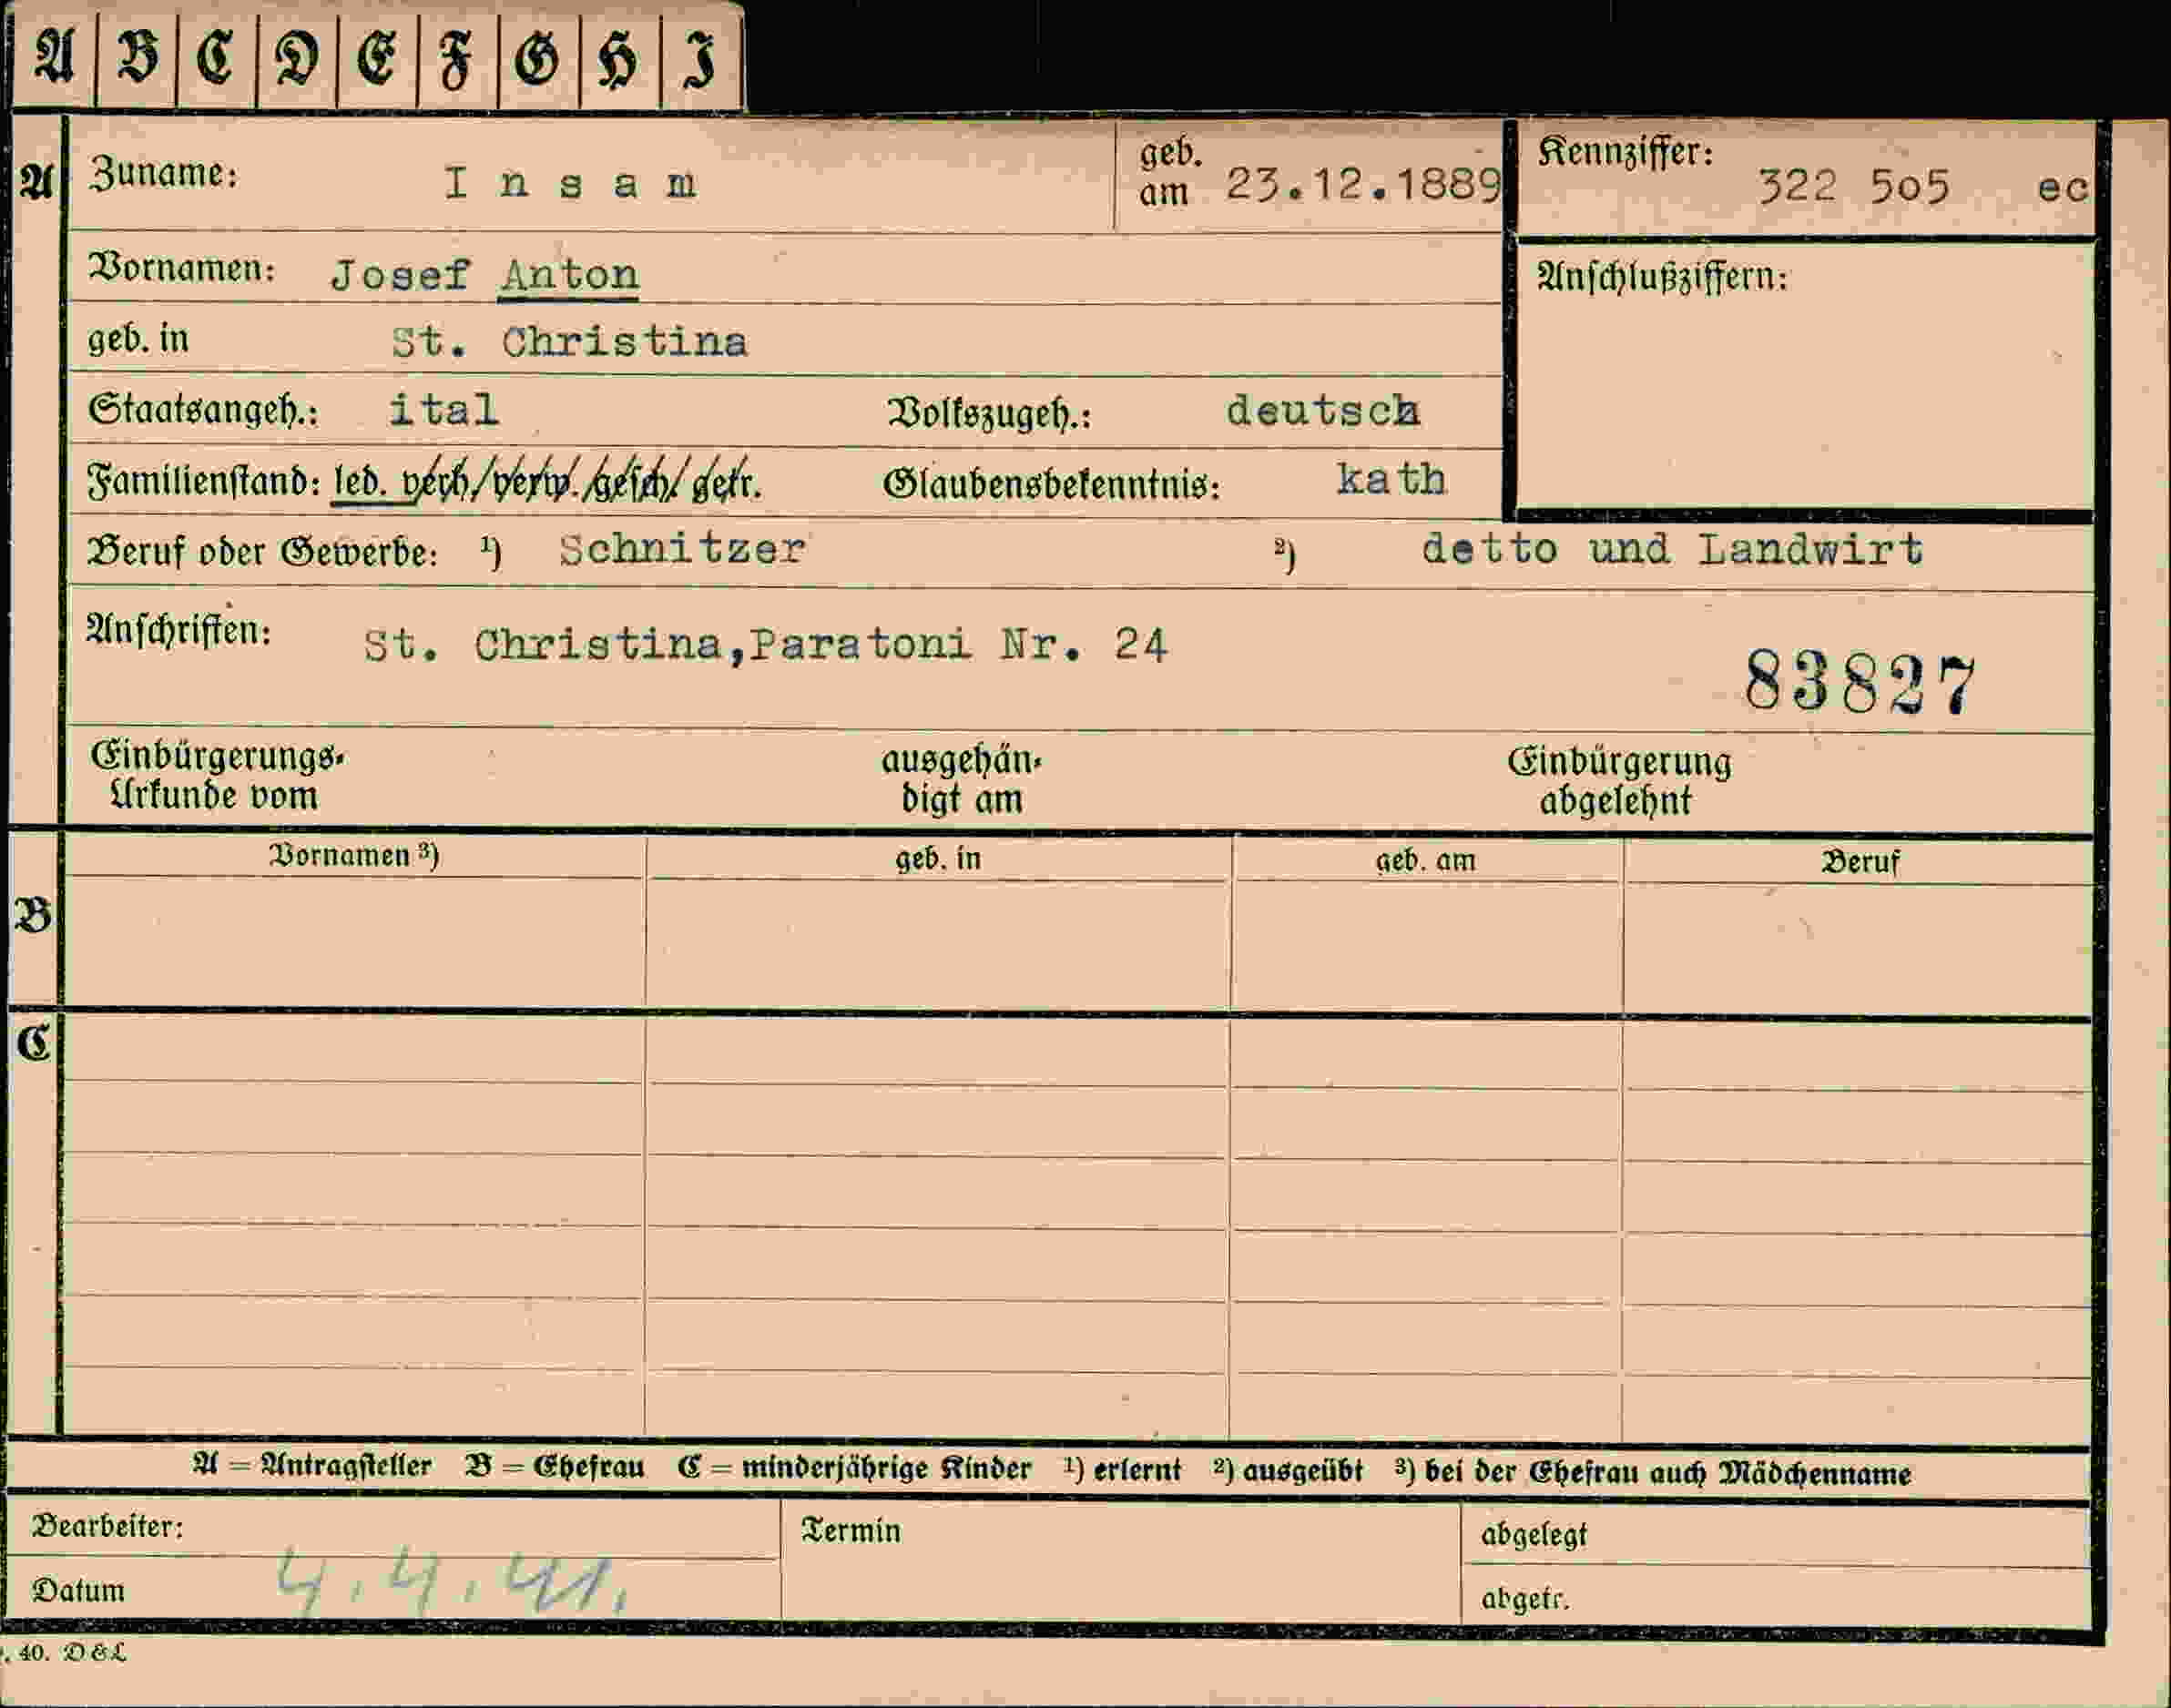 A B C D E F G H I
A Zuname: Insam geb. am 23.12.1889 Kennziffer: 322 5o5 ec
Vornamen: Josef Anton Anschlußziffern:
geb. in St. Christina
Staatsangeh.: ital Volkszugeh.: deutsch
Familienstand: led. verh./verw./gesch/ getr. Glaubensbekenntnis: kath
Beruf oder Gewerbe: ¹) Schnitzer ²) detto und Landwirt
Anschriften: St. Christina,Paratoni Nr. 24
83827
Einbürgerungs- ausgehän- Einbürgerung
Urkunde vom digt am abgelehnt
Vornamen ³) geb. in geb. am Beruf
B
C
A = Antragsteller B = Ehefrau C = minderjährige Kinder ¹) erlernt ²) ausgeübt ³) bei der Ehefrau auch Mädchenname
Bearbeiter: Termin abgelegt
Datum 4.4.41. abgetr.
. 40. D & L